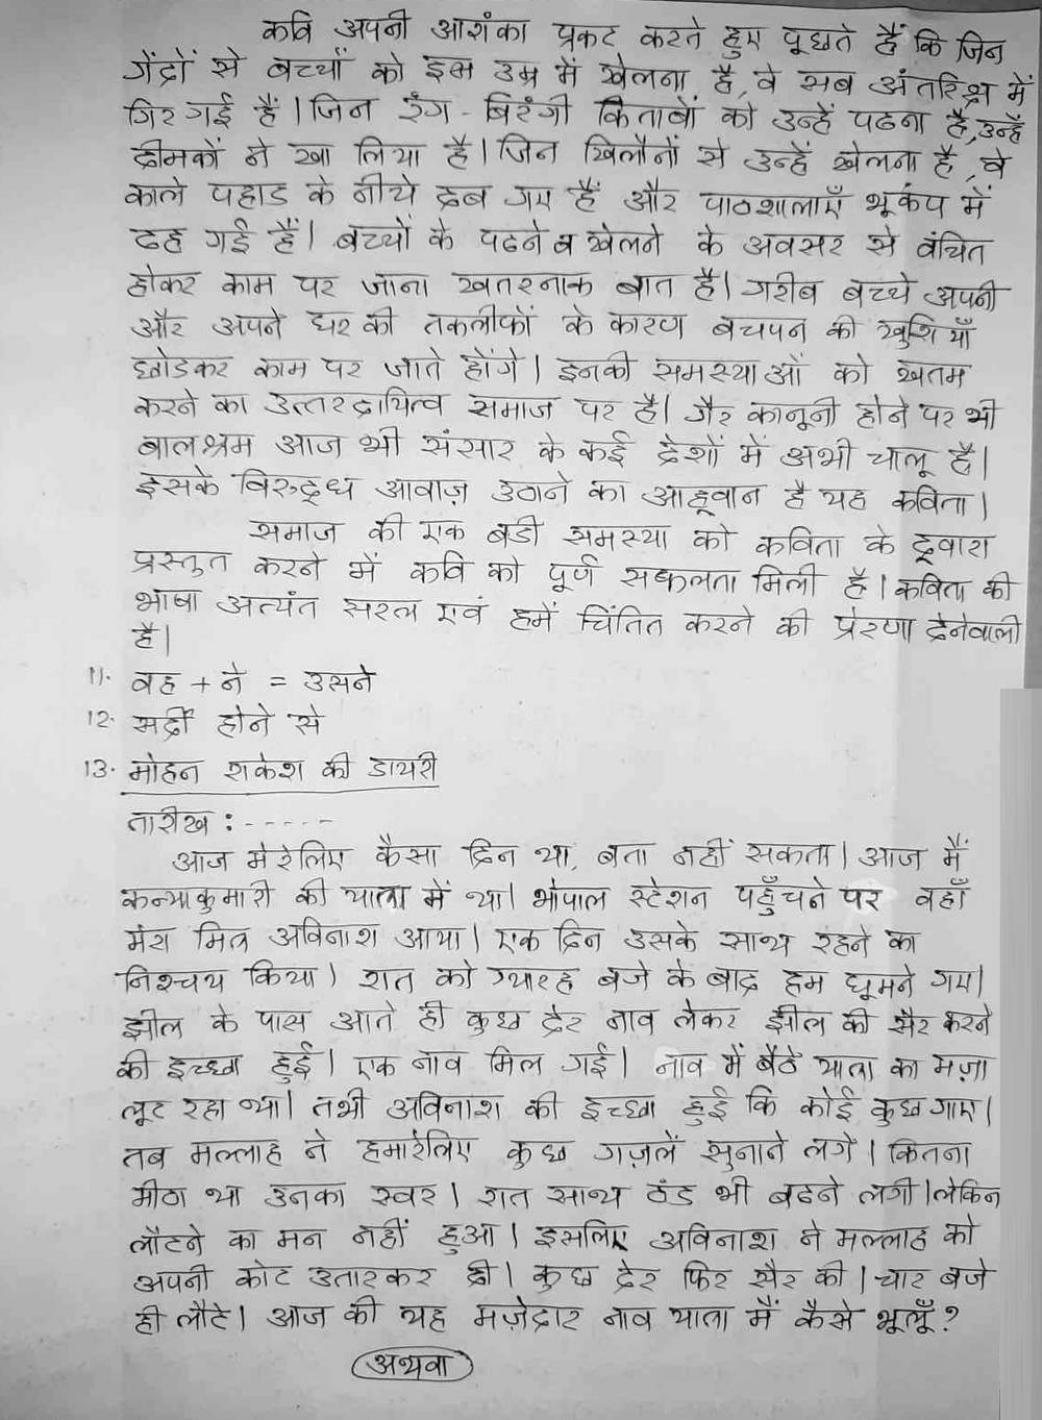 कवि अपनी आशंका प्रकट करते हुए पूछते हैं कि जिन
गेंदों से बच्चों को इस उम्र में खेलना है, वे सब अंतरिक्ष में
गिर गई हैं। जिन रंग-बिरंगी किताबों को उन्हें पढना है, उन्हें
दीमकों ने खा लिया है। जिन खिलौनों से उन्हें खेलना है, वे
काले पहाड के नीचे दब गए हैं और पाठशालाएँ भूकंप में
ढह गई हैं। बच्चों के पढने व खेलने के अवसर से वंचित
होकर काम पर जाना खतरनाक बात है। गरीब बच्चे अपनी
और अपने घर की तकलीफों के कारण बचपन की खुशियाँ
छोडकर काम पर जाते होंगे। इनकी समस्याओं को खतम
करने का उत्तरदायित्व समाज पर है। गैर कानूनी होने पर भी
बालश्रम आज भी संसार के कई देशों में अभी चालू है।
इसके विरुद्ध आवाज़ उठाने का आह्वान है यह कविता।
समाज की एक बडी समस्या को कविता के द्वारा
प्रस्तुत करने में कवि को पूर्ण सफलता मिली है। कविता की
भाषा अत्यंत सरल एवं हमें चिंतित करने की प्रेरणा देनेवाली
है।
11. वह + ने = उसने
12. सर्दी होने से
13. मोहन राकेश की डायरी
तारीख : - - - - -
आज मेरेलिए कैसा दिन था, बता नहीं सकता। आज मैं
कन्याकुमारी की यात्रा में था। भोपाल स्टेशन पहुँचने पर वहाँ
मेरा मित्र अविनाश आया। एक दिन उसके साथ रहने का
निश्चय किया। रात को ग्यारह बजे के बाद हम घूमने गए।
झील के पास आते ही कुछ देर नाव लेकर झील की सैर करने
की इच्छा हुई। एक नाव मिल गई। नाव में बैठे यात्रा का मज़ा
लूट रहा था। तभी अविनाश की इच्छा हुई कि कोई कुछ गाए।
तब मल्लाह ने हमारेलिए कुछ गज़लें सुनाने लगे। कितना
मीठा था उनका स्वर। रात साथ ठंड भी बढने लगी। लेकिन
लौटने का मन नहीं हुआ। इसलिए अविनाश ने मल्लाह को
अपनी कोट उतारकर दी। कुछ देर फिर सैर की। चार बजे
ही लौटे। आज की यह मज़ेदार नाव यात्रा मैं कैसे भूलूँ?
अथवा